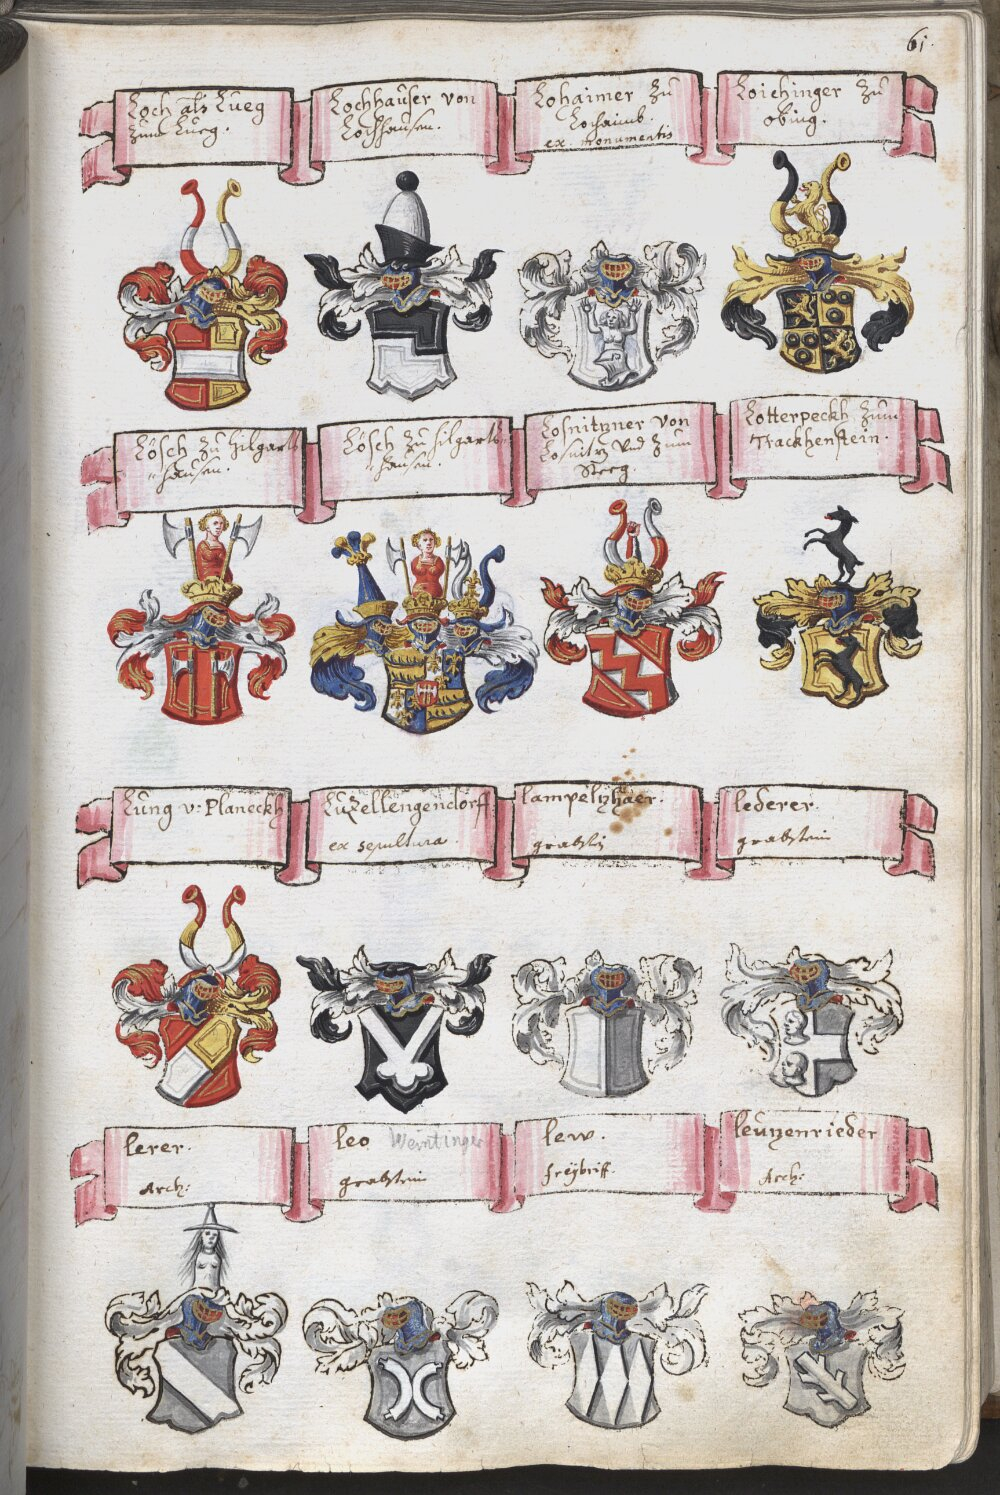 61.
Loch als Lueg
zum Lueg.
Lochhauser von
Lochhausen.
Lohaimer zu
Lohaimb.
ex monumentis
Loichinger zu
obing.
Lösch zu Hilgarts
hausen.
Lösch zu hilgarts
hausen.
Losnitzner von
Losnitz und zum
Steeg.
Lotterpeckh zum
Trackhenstein.
Lung v: Planeckh
Luzellengendorff
ex sepultura.
lampeltzhaer.
lederer.
grabstein
lerer.
Arch:
leo Wemtinger
grabstein
lew.
freybrieff.
leutzenrieder
Arch: